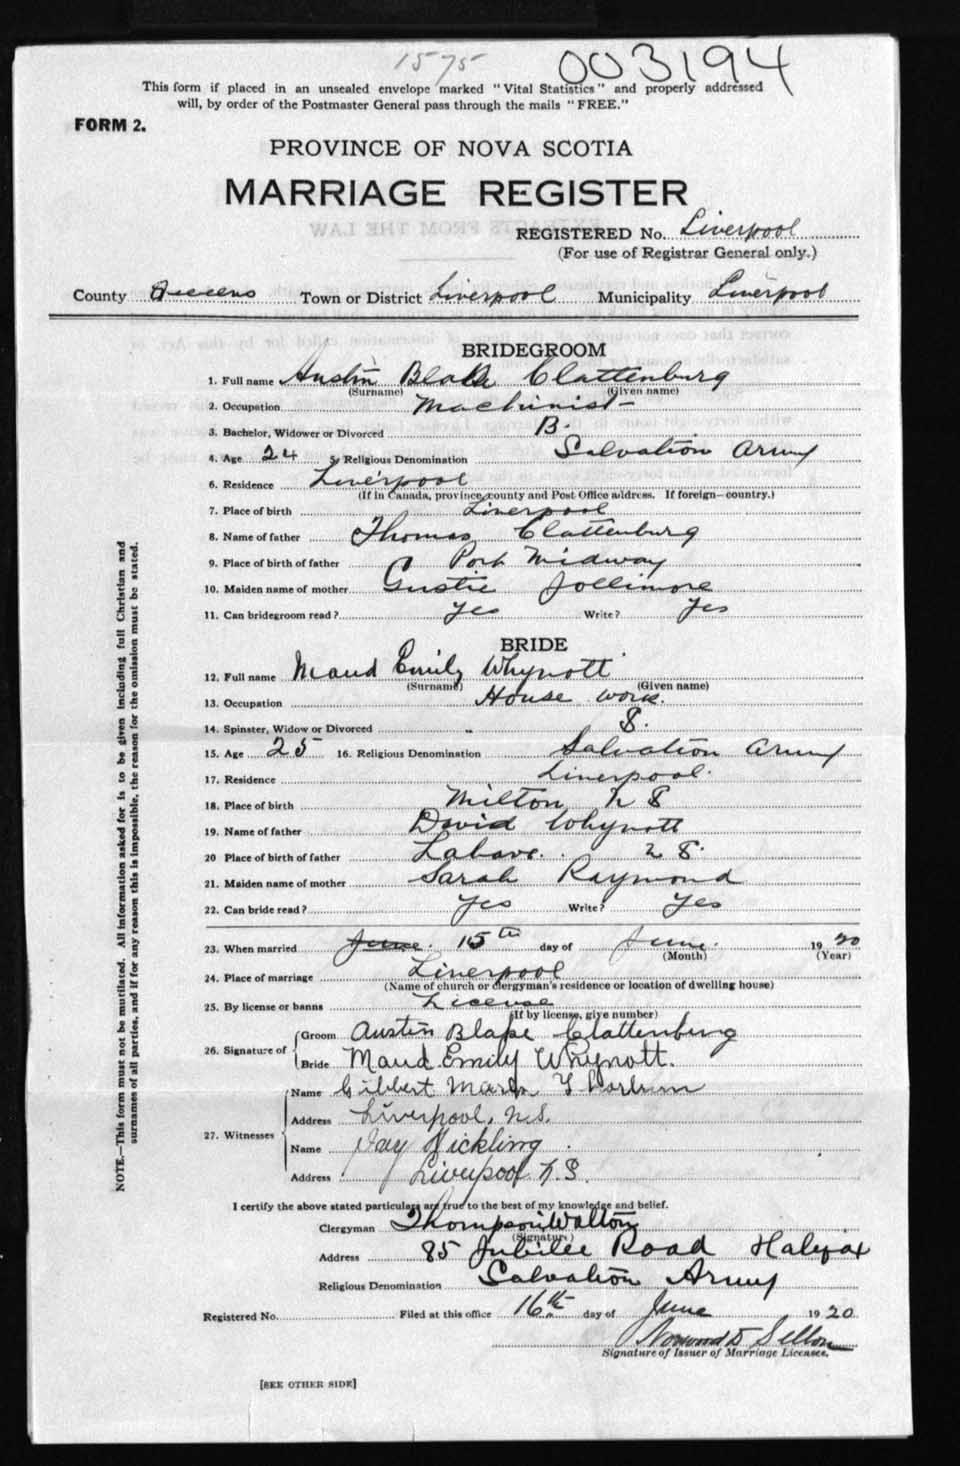 1575 003194
This form if placed in an unsealed envelope marked "Vital Statistics" and properly addressed
will, by order of the Postmaster General pass through the mails "FREE."
FORM 2.
PROVINCE OF NOVA SCOTIA
MARRIAGE REGISTER
REGISTERED No. Liverpool
(For use of Registrar General only.)
County Queens Town or District Liverpool Municipality Liverpool
BRIDEGROOM
1. Full name Austin Blake Clattenburg
(Surname) (Given name)
2. Occupation Machinist
3. Bachelor, Widower or Divorced B.
4. Age 24 5. Religious Denomination Salvation Army
6. Residence Liverpool
(If in Canada, province, county and Post Office address. If foreign—country.)
7. Place of birth Liverpool
8. Name of father Thomas Clattenburg
9. Place of birth of father Port Midway
10. Maiden name of mother Gustie Jollimore
11. Can bridegroom read? Yes Write? Yes
BRIDE
12. Full name Maud Emily Whynott
(Surname) (Given name)
13. Occupation House work.
14. Spinster, Widow or Divorced S.
15. Age 25 16. Religious Denomination Salvation Army
17. Residence Liverpool.
18. Place of birth Milton N S
19. Name of father David Whynott
20 Place of birth of father Lahave. N S.
21. Maiden name of mother Sarah Raymond
22. Can bride read? Yes Write? Yes
23. When married June. 15th day of June. 1920
(Month) (Year)
24. Place of marriage Liverpool
(Name of church or clergyman's residence or location of dwelling house)
25. By license or banns License
(If by license, give number)
26. Signature of
Groom Austin Blake Clattenburg
Bride Maud Emily Whynott.
27. Witnesses
Name Gilbert
Address Liverpool, N.S.
Name Hickling
Address Liverpool N.S.
I certify the above stated particulars are true to the best of my knowledge and belief.
Clergyman Thompson Walton
(Signature)
Address 85 Jubilee Road Halifax
Religious Denomination Salvation Army
Registered No. Filed at this office 16th day of June 1920
Signature of Issuer of Marriage Licenses.
[SEE OTHER SIDE]
NOTE.—This form must not be mutilated. All information asked for is to be given including full Christian and
surnames of all parties, and if for any reason this is impossible, the reason for the omission must be stated.
EXTRACTS FROM THE LAW